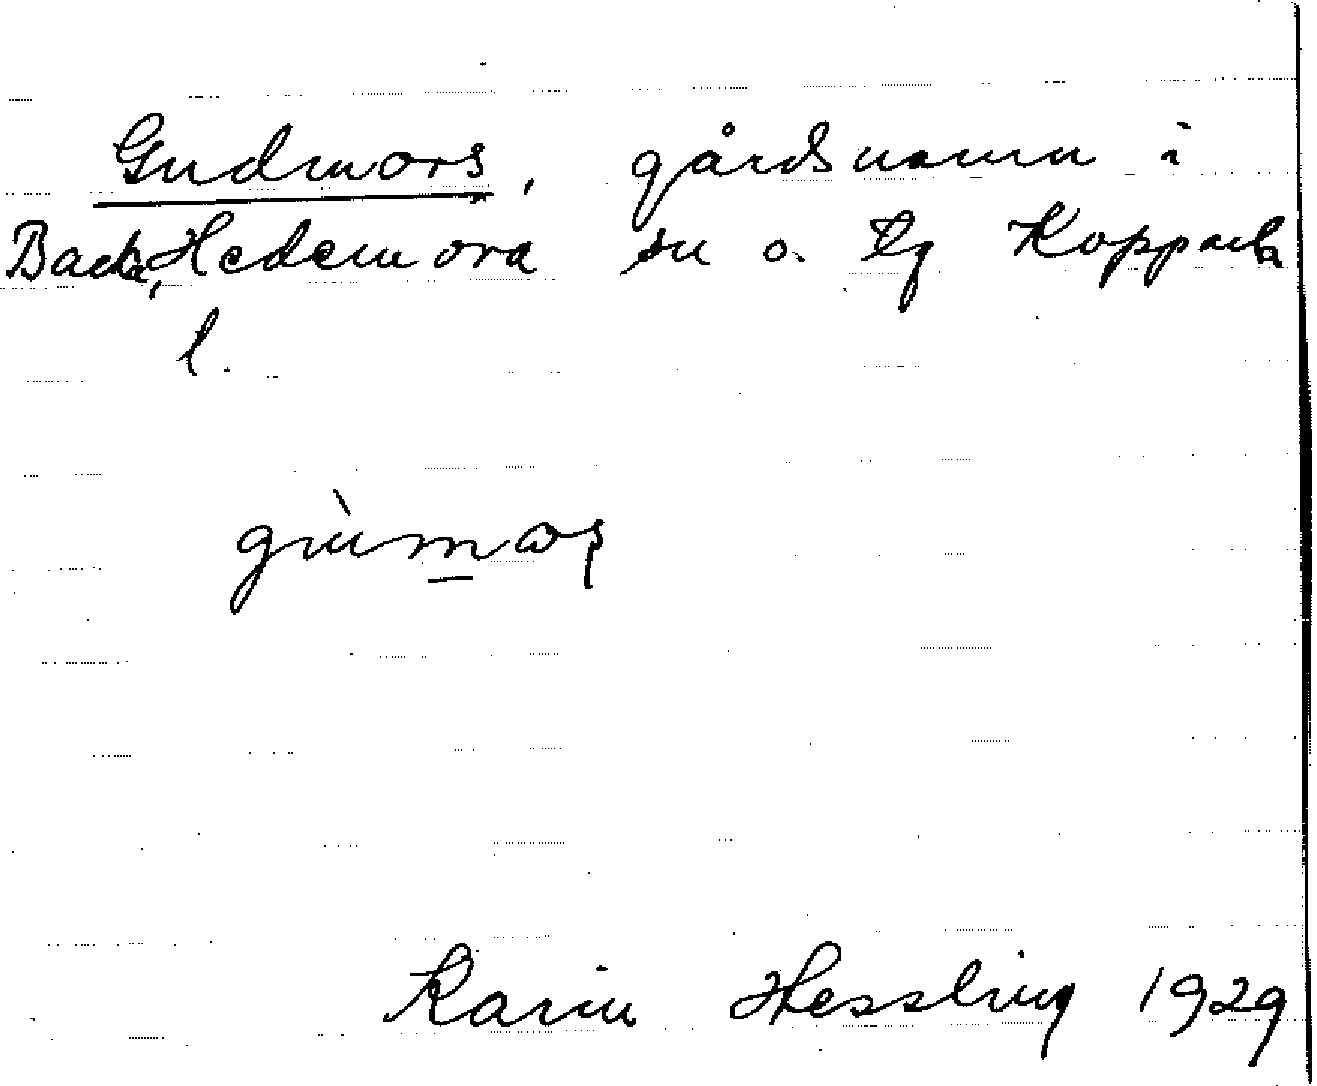 Gudmors, gårdsnamn i
Backa, Hedemora sn o. tg Kopparb
l.
Karin Hessling 1929